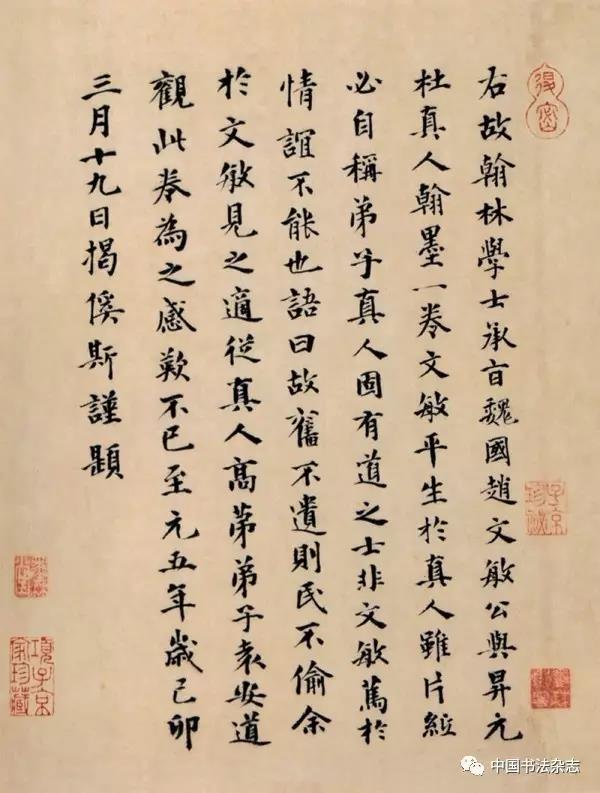 右故翰林學士承旨魏國趙文敏公與昇元
杜真人翰墨一卷文敏平生於真人雖片紙
必自稱弟子真人固有道之士非文敏篤於
情誼不能也語曰故舊不遺則民不偷余
於文敏見之適從真人高第弟子袁安道
觀此卷為之感歎不已至元五年歲己卯
三月十九日揭傒斯謹題
項子京
家珍藏
子京
珍秘
中国书法杂志